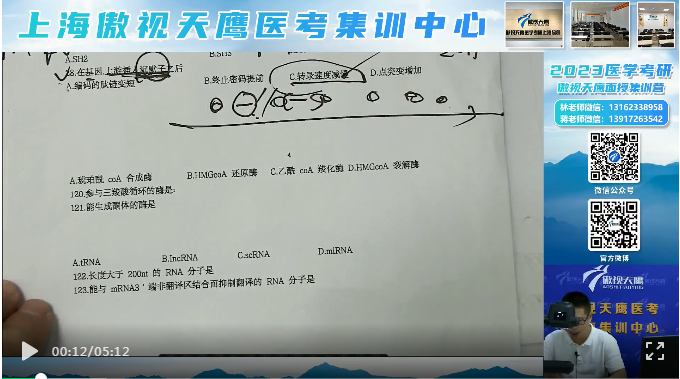 上海傲视天鹰医考集训中心
A.SH2
B.SH3
A.编码的肽链变短
B.终止密码提前
C.转录速度减慢
D.点突变增加
A.琥珀酰 coA 合成酶
B.HMGcoA 还原酶
C.乙酰 coA 羧化酶
D.HMGcoA 裂解酶
120.参与三羧酸循环的酶是:
121.能生成酮体的酶是
A.tRNA
B.lncRNA
C.scRNA
D.miRNA
122.长度大于 200nt 的 RNA 分子是
123.能与 mRNA3 ' 端非翻译区结合而抑制翻译的 RNA 分子是
00:12/05:12
2023医学考研
傲视天鹰面授集训营
林老师微信: 13162338958
蒋老师微信: 13917263542
微信公众号
官方微博
傲视天鹰
视天鹰医考
集训中心